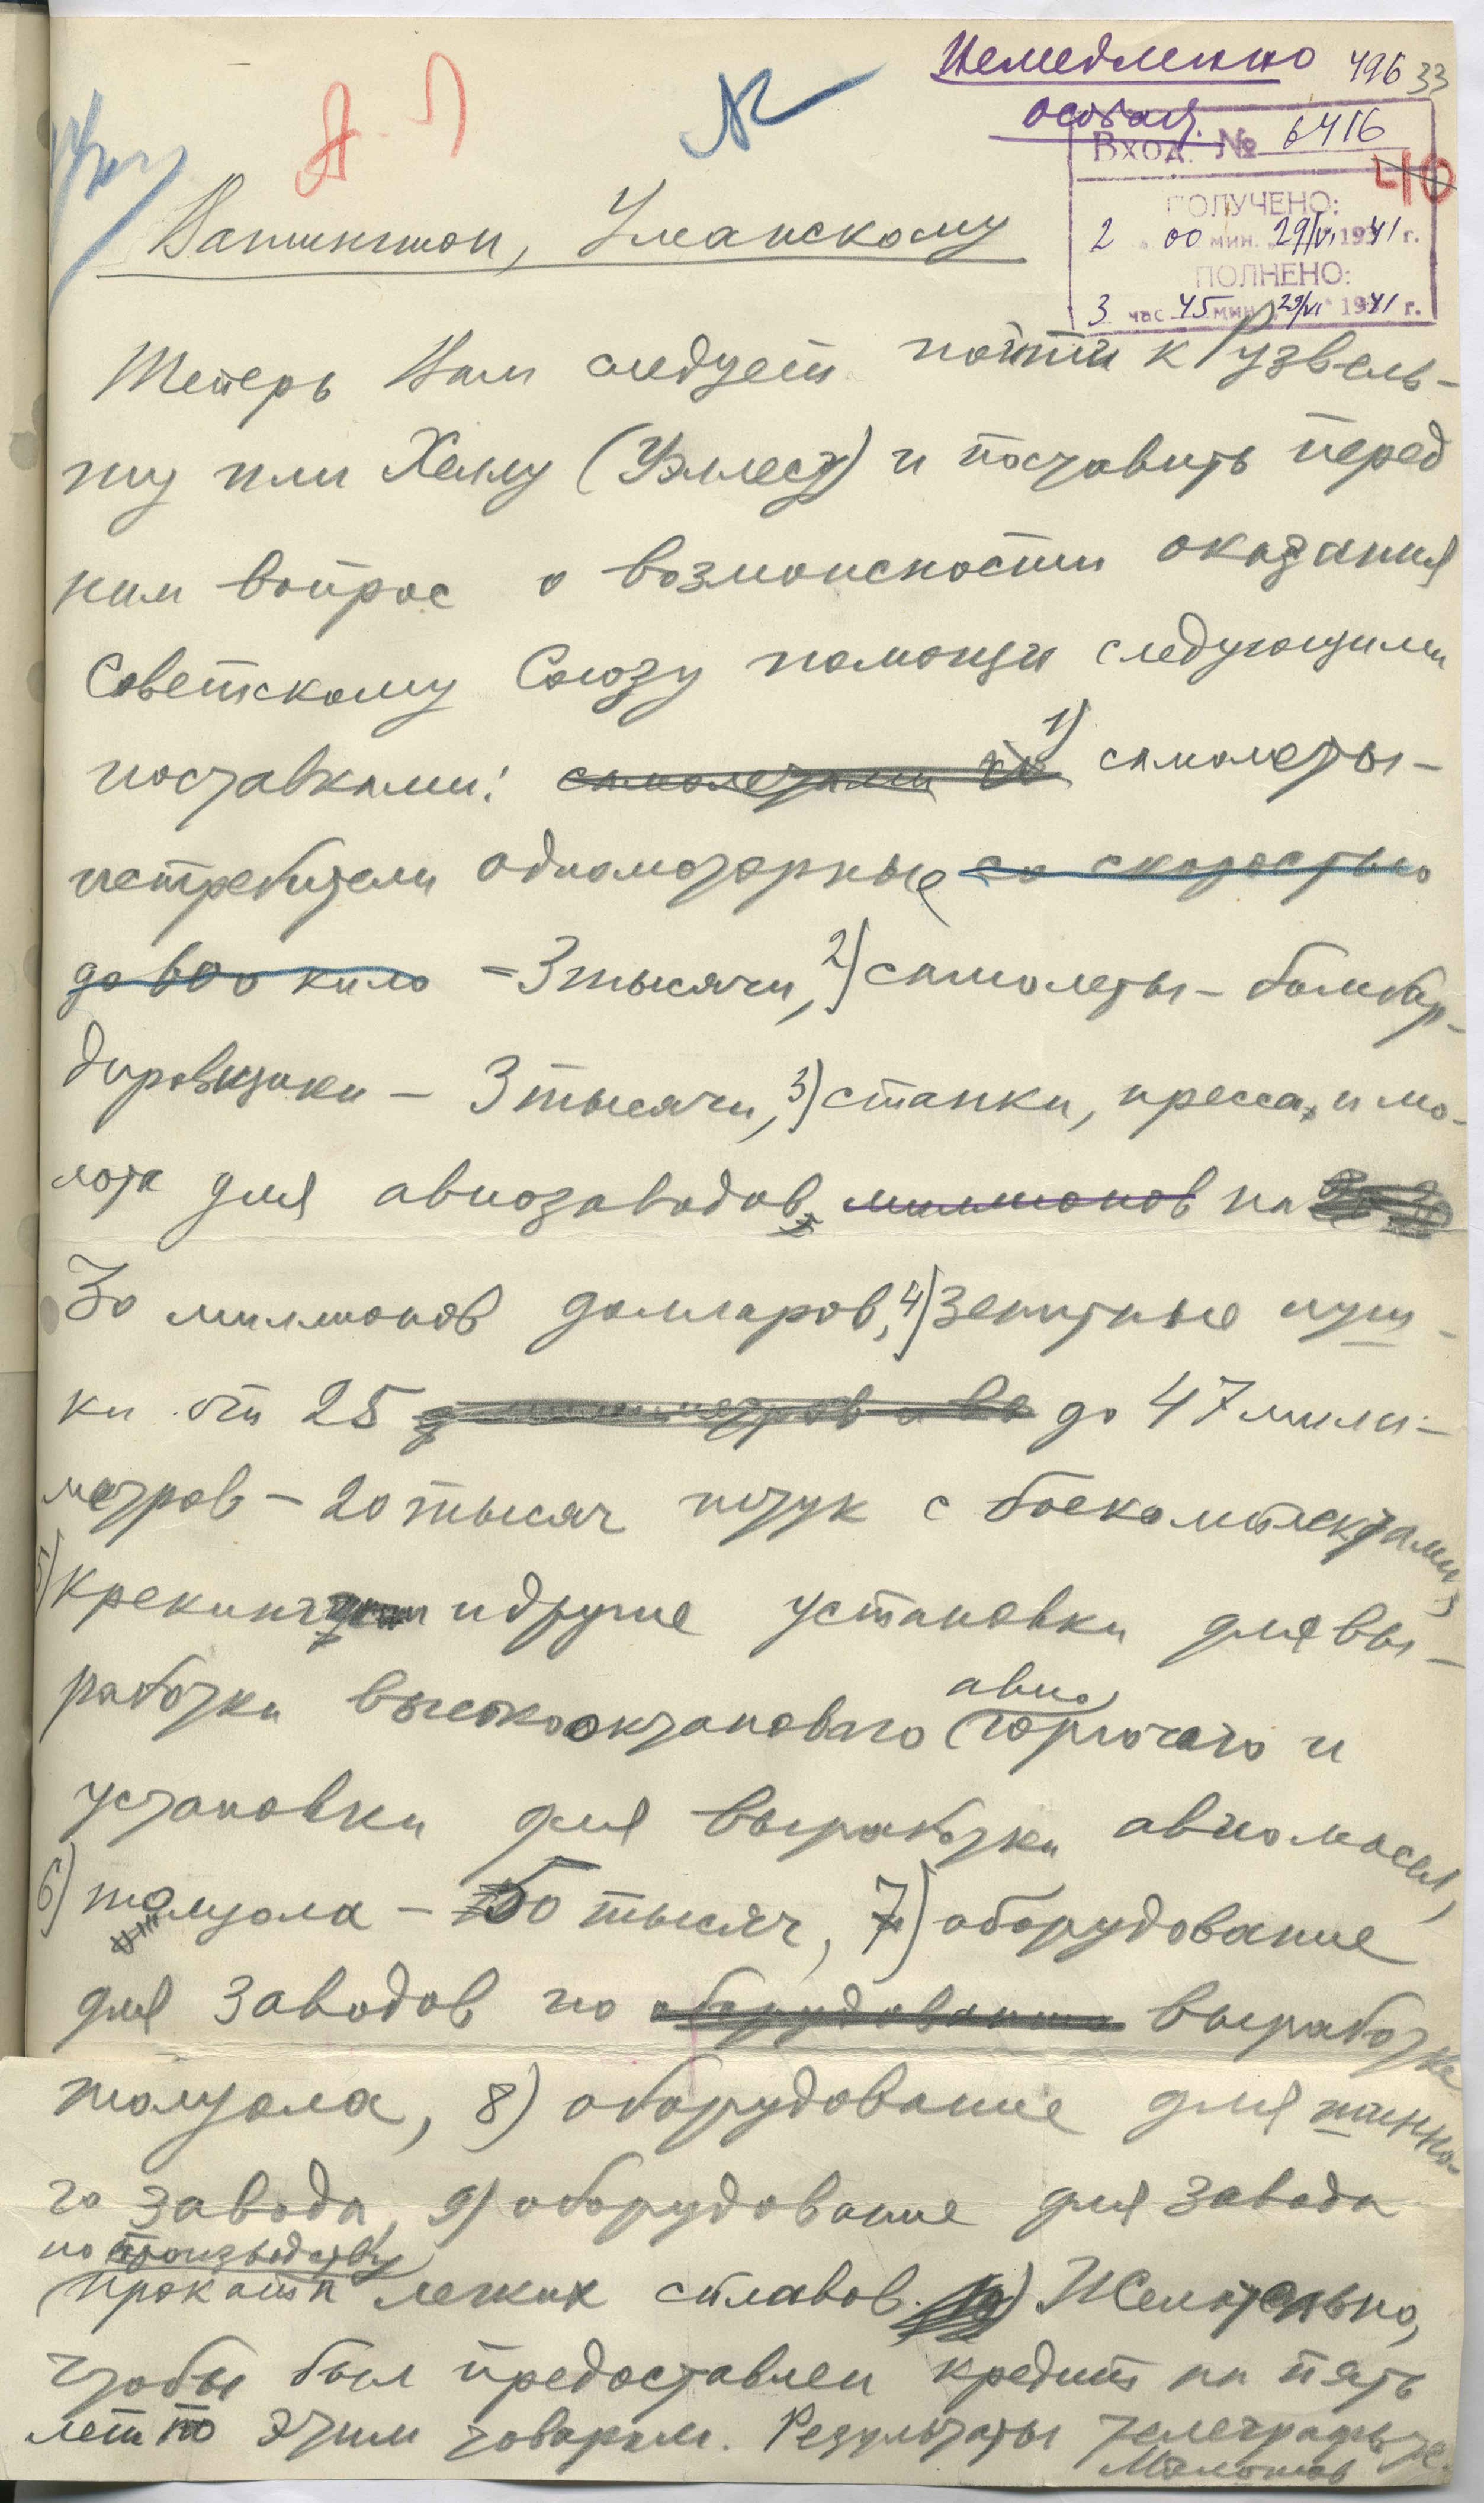 Немедленно 496 33
особая.
Вход. № 6416
40
ПОЛУЧЕНО:
2 00 мин. 29/VI 1941 г.
ПОЛНЕНО:
3 час 45 мин. 29/VI 1941 г.
Вашингтон, Уманскому
Теперь Вам следует пойти к Рузвель-
ту или Хеллу (Уэллесу) и поставить перед
ним вопрос о возможности оказания
Советскому Союзу помощи следующими
поставками: самолетами 1) самолеты-
истребители одномоторные со скоростью
до 600 кило – 3 тысячи, 2) самолеты-бомбар-
дировщики – 3 тысячи, 3) станки, пресса и мо-
лота для авиозаводов миллионов на
30 миллионов долларов, 4) зенитные пуш-
ки от 25 миллиметров до 47 мили-
метров – 20 тысяч штук с боекомплектами,
5) крекинг и другие установки для вы-
работки высокооктанового авио
горючего и
установки для выработки авиомасел,
6) толуола – 50 тысяч, 7) оборудование
для заводов по оборудованию выработке
толуола, 8) оборудование для шинно-
го завода, 9) оборудование для завода
по производству
проката легких сплавов. Желательно,
чтобы был предоставлен кредит на пять
лет по этим товарам. Результаты телеграфьте.
Молотов